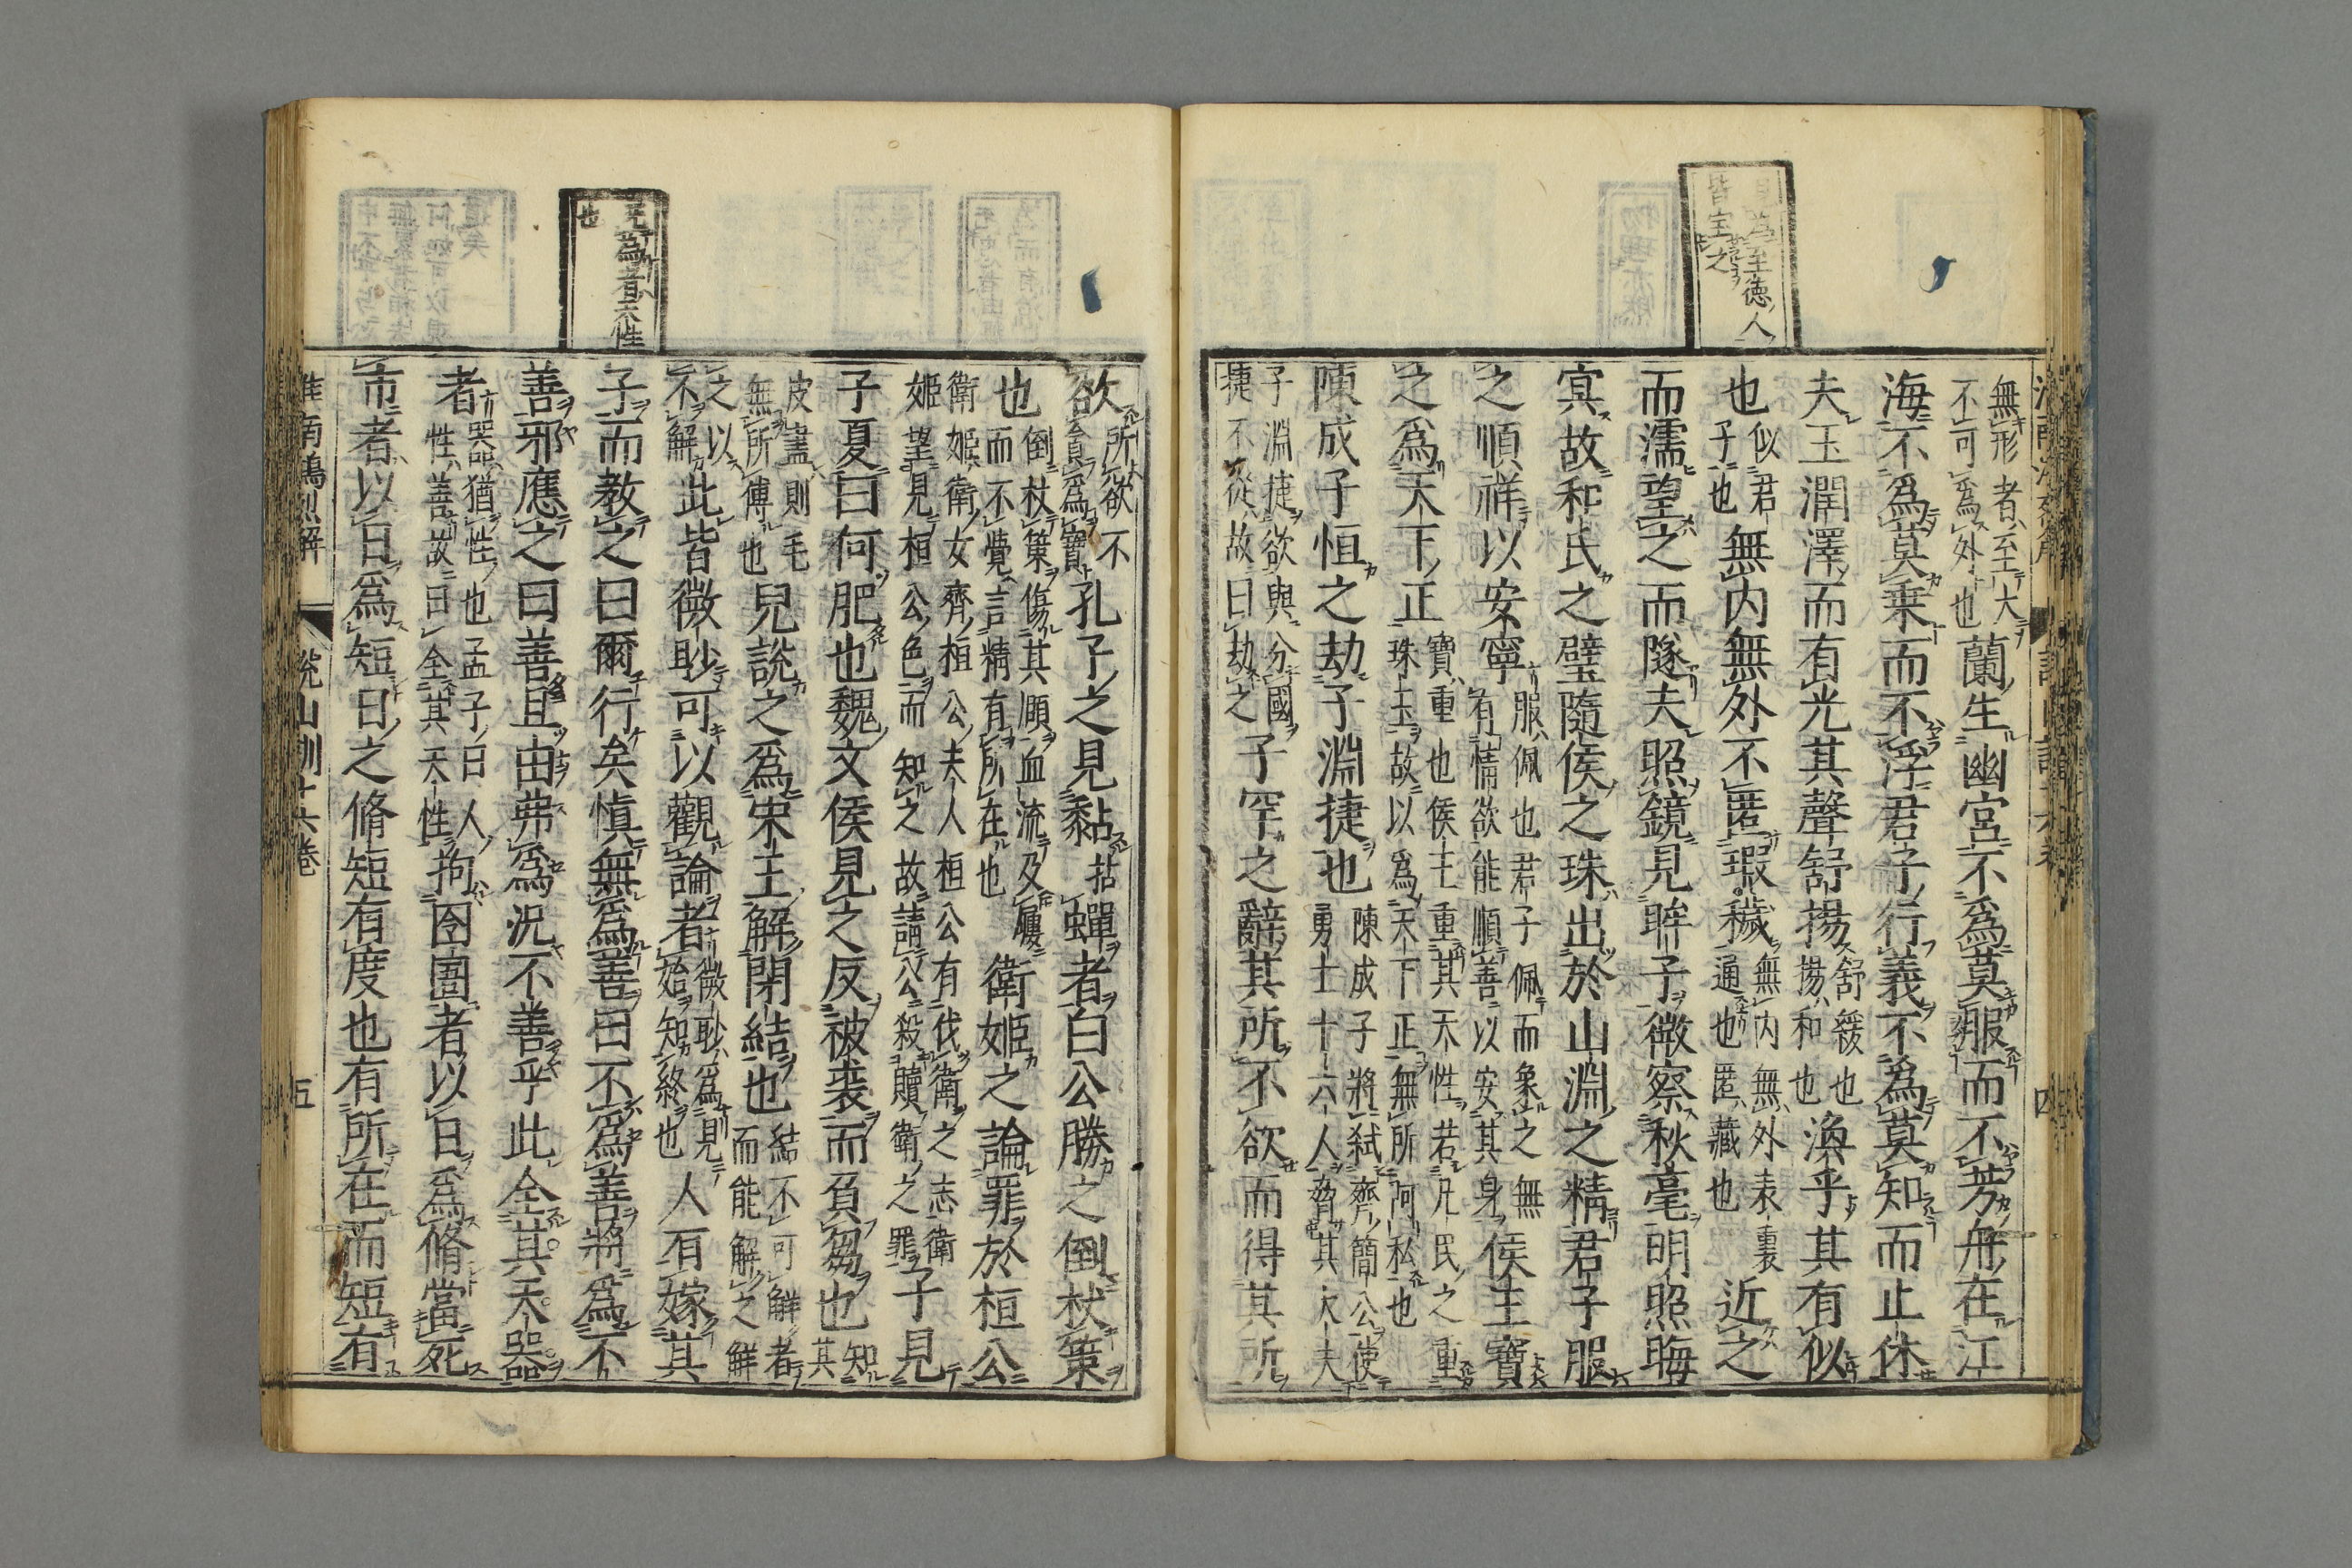 皆宝之
無形者至大
不可爲外也
蘭生幽宮不爲莫服而不芳舟在江
海不爲莫乗而不浮君子行義不爲莫知而止休
夫玉潤澤而有光其聲舒揚
舒緩也
揚和也
渙乎其有似
也
似君
子也
無内無外不匿瑕穢
無内無外表裏
通也匿藏也
近之
而濡望之而隧夫照鏡見眸子微察秋毫明照晦
冥故和氏之璧隨侯之珠出於山淵之精君子服
之順祥以安寧
服佩也君子佩而象之無
有情欲能順善以安其身
侯王寶
之爲天下正
寶重也侯王重其天性若凡民之重
珠玉故以爲天下正無所阿私也
陳成子恒之劫子淵捷也
陳成子將弑齊簡公使
勇士十六人脅其大夫
子淵捷欲與分國
捷不從故曰劫之
子罕之辭其所不欲而得其所
欲
所欲不
貪爲寶
孔子之見黏
拈
蟬者白公勝之倒杖策
也
倒杖策傷其頤血流及屨
而不覺言精有所在也
衛姬之論罪於桓公
衛姬衛女齊桓公夫人桓公有伐衛之志衛
姬望見桓公色而知之故請公殺贖衛之罪
子見
子夏曰何肥也魏文侯見之反被裘而負芻也
知
其
皮盡則毛
無所傅也
兒説之爲宋王解閉結也
結不可解者
而能解之解
之以
不解
此皆微眇可以觀論者
微眇爲見
始知終也
人有嫁其
子而教之曰爾行矣慎無爲善曰不爲善將爲不
善邪應之曰善且由弗爲况不善乎此全其天器
者
器猶性也孟子曰人
性善故曰全其天性
拘囹圄者以日爲脩當死
市者以日爲短日之脩短有度也有所在而短有
淮南鴻烈解
説山訓十六巻
五